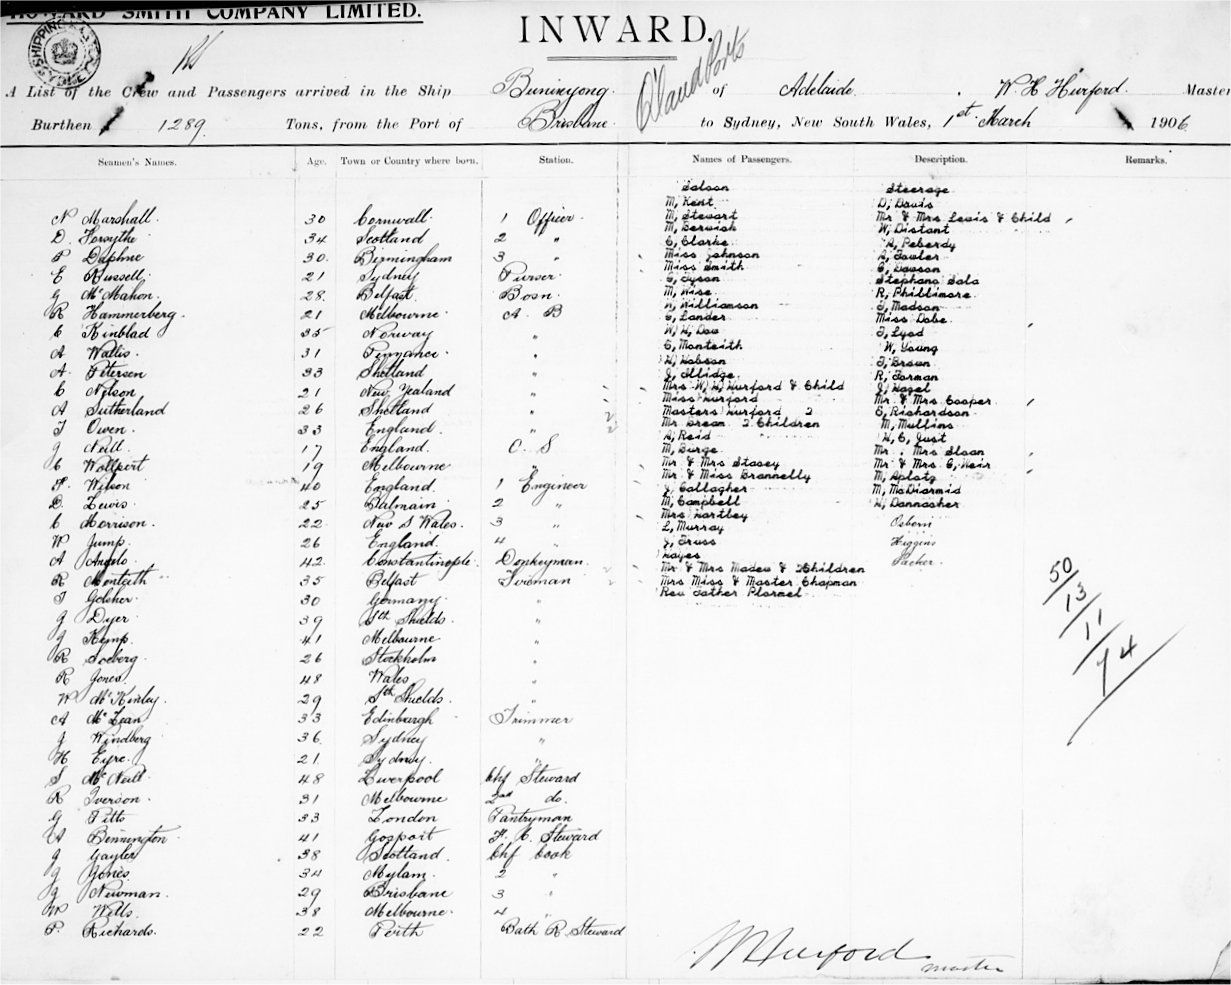 HOWARD SMITH COMPANY LIMITED.
INWARD.
SHIPPING
A List of the Crew and Passengers arrived in the Ship Buninyong of Adelaide. W. H. Hurford. Master
Burthen 1289 Tons, from the Port of Brisbane to Sydney, New South Wales, 1st March 1906
Seamen's Names. Age. Town or Country where born. Station. Names of Passengers. Description. Remarks.
N Marshall. 30 Cornwall 1 Officer
D. Forsythe 34 Scotland 2 "
P Daphne 30. Birmingham 3 "
E Russell. 21 Sydney Purser
J McMahon. 28. Belfast Bosn.
R Hammerberg. 21 Melbourne A. B
C Kinblad 35 Norway "
A Wallis. 31 Penzance "
A Petersen 33 Shetland "
C Nelson 21 New Zealand "
A Sutherland 26 Shetland "
J Owen. 33 England. "
J Neill. 17 England. C. S
C Wollpert 19 Melbourne "
F. Wilson 40 England 1 Engineer
D. Lewis 25 Balmain 2 "
C Morrison. 22 New S Wales. 3 "
W Jump. 26 England. 4 "
A Angelo 42 Constantinople. Donkeyman.
R Monteith 35 Belfast Fireman
J Golsher 30 Germany "
J Dyer 39 Sth Shields. "
J Kemp. 41 Melbourne "
R Soeberg. 26 Stockholm "
R Jones 48 Wales "
W McKinley. 29 Sth Shields. "
A McLean 33 Edinburgh Trimmer
J Windberg 36 Sydney "
H Eyre. 21 Sydney. "
S McNeill 48 Liverpool Chf Steward
R Iverson. 31 Melbourne 2nd do.
G Pitts 33 London Pantryman
A Bennington 41 Gosport F. C. Steward
J Gayler 38 Scotland. Chf Cook
J Jones 34 Mylam. 2 "
J Newman. 29 Brisbane 3 "
W Wells. 38 Melbourne. 4 "
P. Richards. 22 Perth Bath R. Steward
Saloon
M, Kent
M, Stewart
M, Berwick
C, Clarke
Miss Johnson
Miss Smith
C, Tyson
M, Wise
W, Williamson
C, Lander
W, H, Dow
C, Monteith
H, Hobson
J, Illidge
Mrs W, H, Hurford & Child
Miss Hurford
Masters Hurford 2
Mr Dream 2 Children
A, Reid
M, Burge
Mr & Mrs Stacey
Mr & Miss Brannelly
J, Gallagher
M, Campbell
Mrs Hartley
L, Murray
J, Truss
Hayes
Mr & Mrs Madew & 2Children
Mrs Miss & Master Chapman
Rev Father Plormel
Steerage
D, Davis
Mr & Mrs Lewis & Child
W, Distant
A, Peberdy
A, Fowler
C, Dawson
Stephano Sala
R, Phillimore
J, Madson
Miss Dobe
J, Lyod
W, Young
J, Brown
R, Forman
J, Hazel
Mr & Mrs Cooper
E, Richardson
M, Mullins
H, C, Just
Mr & Mrs Sloan
Mr & Mrs C, Weir
M, Aplatz
M, McDiarmid
H, Dannasher
Osborn
Higgins
Packer.
50
13
11
74
W H Hurford
master